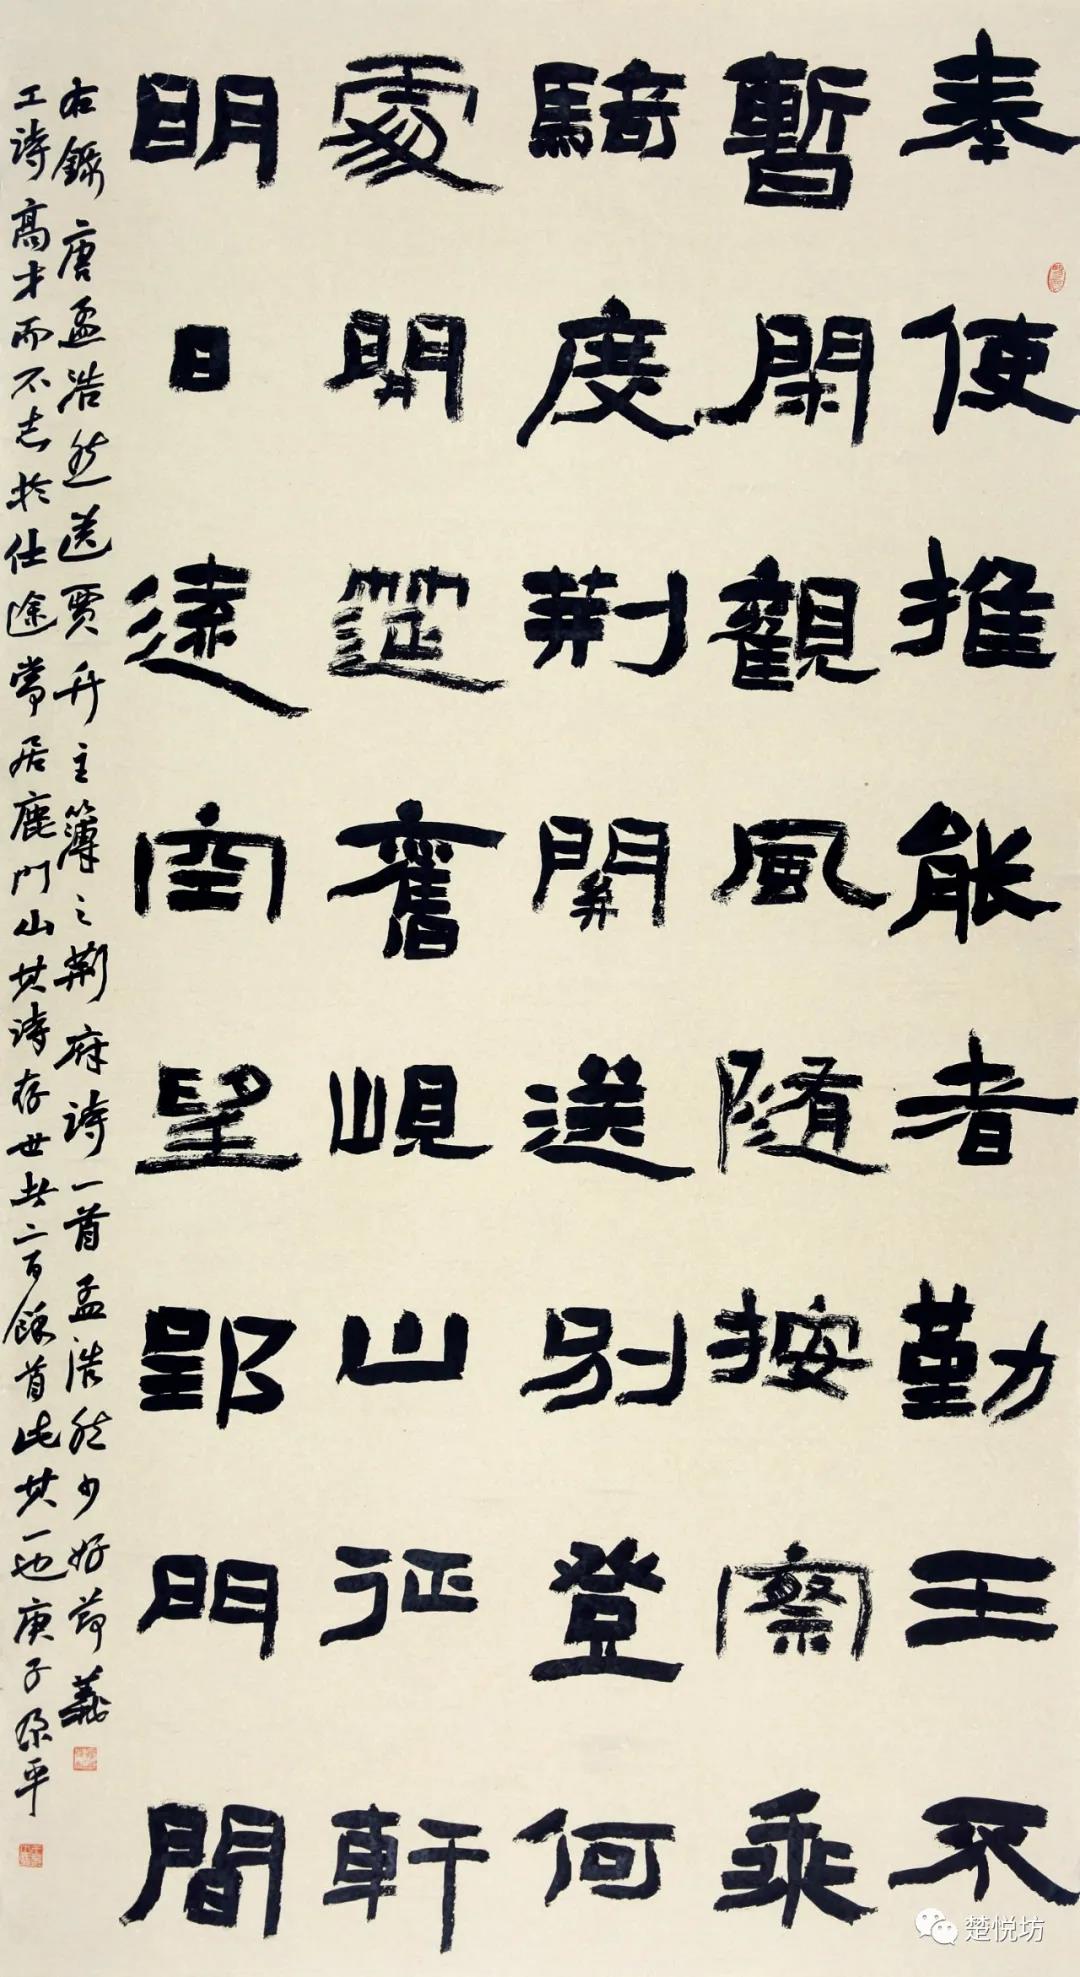 奉使推能者勤王不
暫閑觀風隨按察乘
騎度荊關送別登何
處開筵舊峴山征軒
明日遠空望郢門間
右錄唐孟浩然送賈升主簿之荊府詩一首孟浩然少好節義
工詩高才而不志於仕途常居鹿門山其詩存世共二百餘首此其一也庚子平
楚悦坊